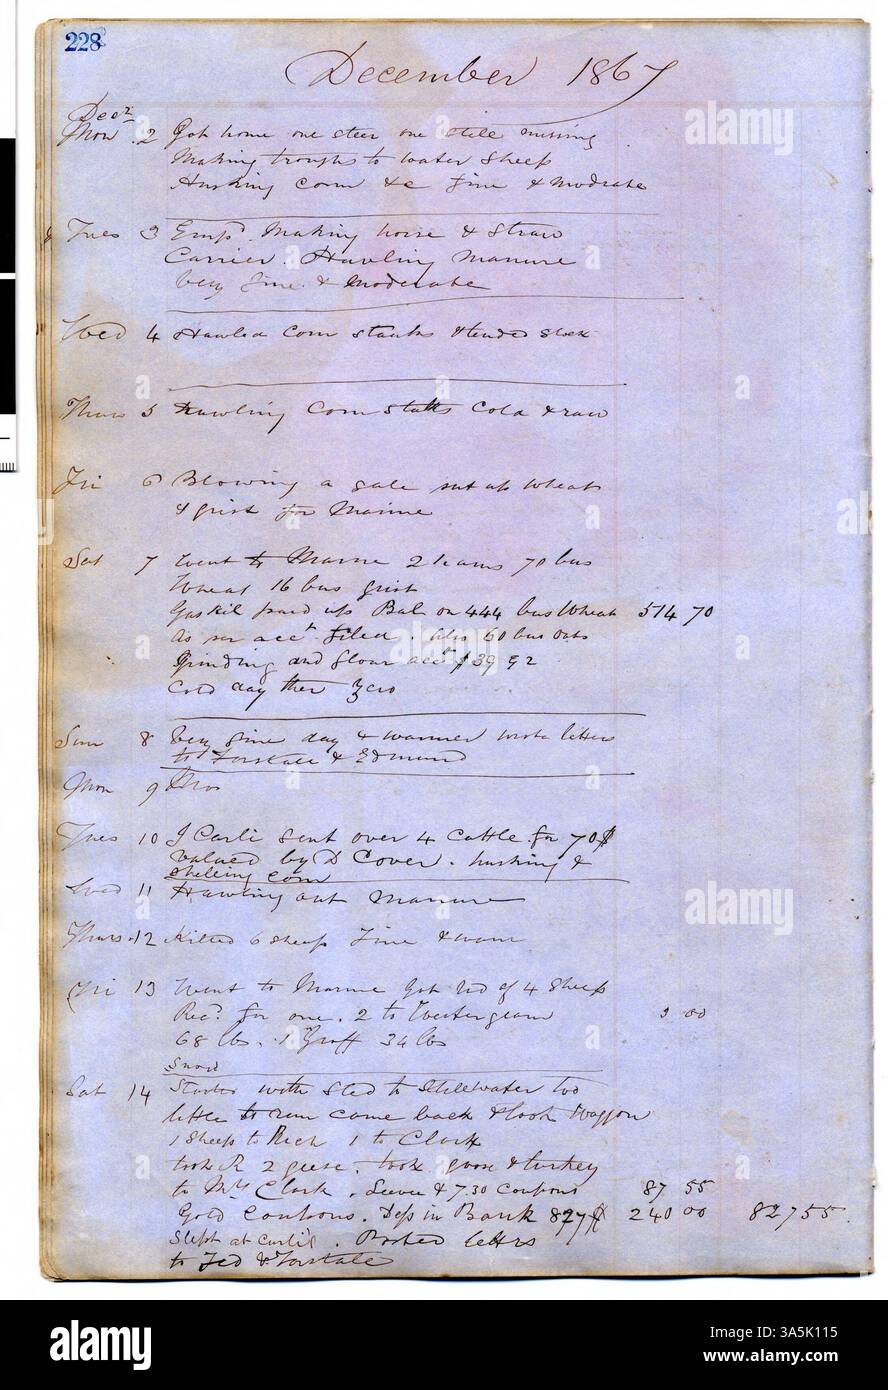 228
December 1867
Decr
Mon 2 Got home one steer one still missing
Making troughs to water Sheep
Husking Corn &c fine & Moderate
& Tues 3 Empd. Making horse & Straw
Carrier. Hawling Manure
Very fine & Moderate
Wed 4 Hawled Corn stalks & tended
Thurs 5 Hawling Corn Stalks Cold & raw
Fri 6 Blowing a gale put up Wheat
& grist for Marine
Sat 7 Went to Marine 2 teams 70 bus
Wheat 16 bus grist
Gaskil paid up Bal on 444 bus Wheat 514 70
As per acct filed. Also 60 bus oats
Grinding and flour acct $39 92
Cold day ther Zero
Sun 8 Very fine day & warmer wrote letters
to & Edmund
Mon 9
Tues 10 J Carli sent over 4 Cattle for 70$
Valued by D Cover. husking &
shelling corn
Wed 11 Hawling out Manure
Thurs. 12 Killed 6 sheep Fine & warm
Fri 13 Went to Marine Got rid of 4 Sheep
Recd. for one. 2 to Westergreen 3 00
68 lbs. 1 34 lbs
Snow
Sat 14 Started with Sled to Stillwater too
little to run came back & took Waggon
1 Sheep to Rich 1 to Clark
took R 2 geese. took goose & turkey
to Mrs Clark. & 7.30 Coupons 87 55
Gold Coupons. Dep in Bank 827 240 00 827 55.
Slept at Carlis. Posted letters
to Ted &
alamy
Image ID: 3A5K115
www.alamy.com